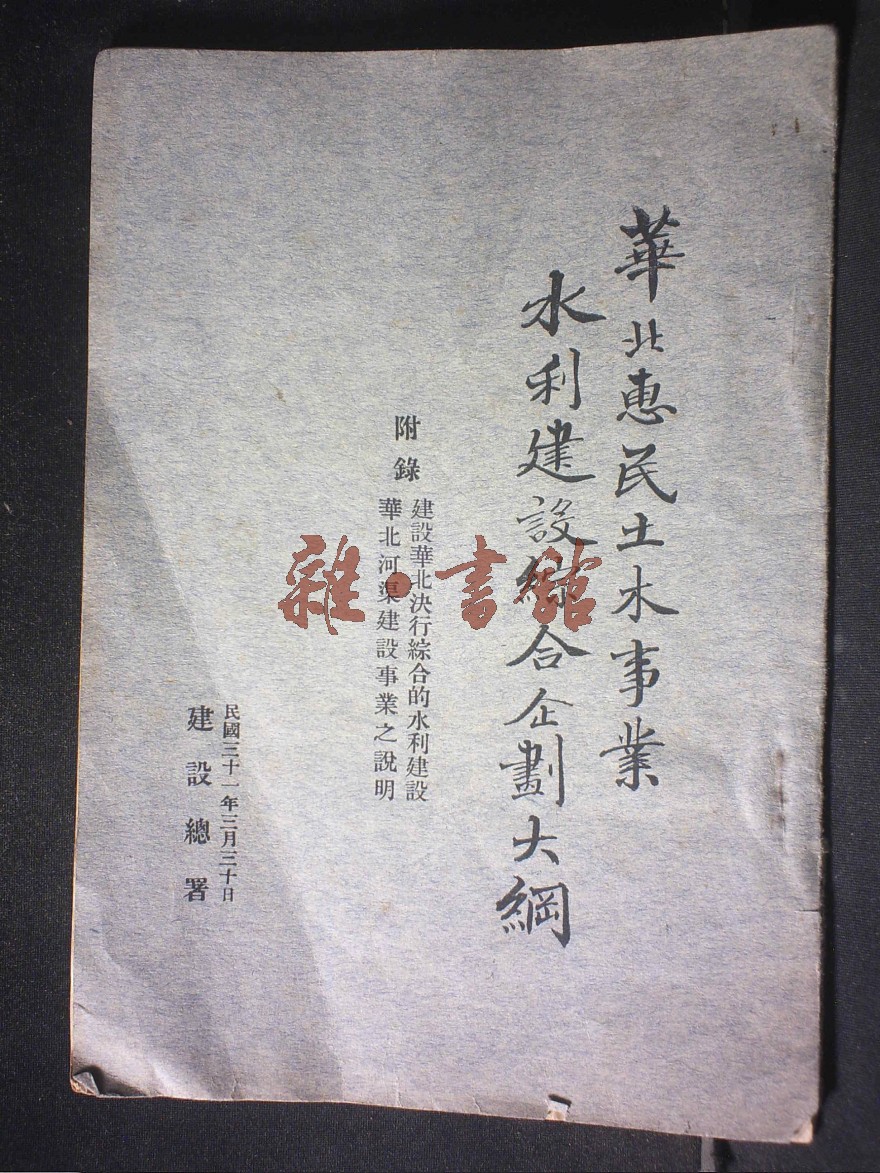 華北惠民土木事業
水利建設綜合企劃大綱
附錄
建設華北決行綜合的水利建設
華北河渠建設事業之說明
民國三十一年三月三十日
建設總署
雜·書館